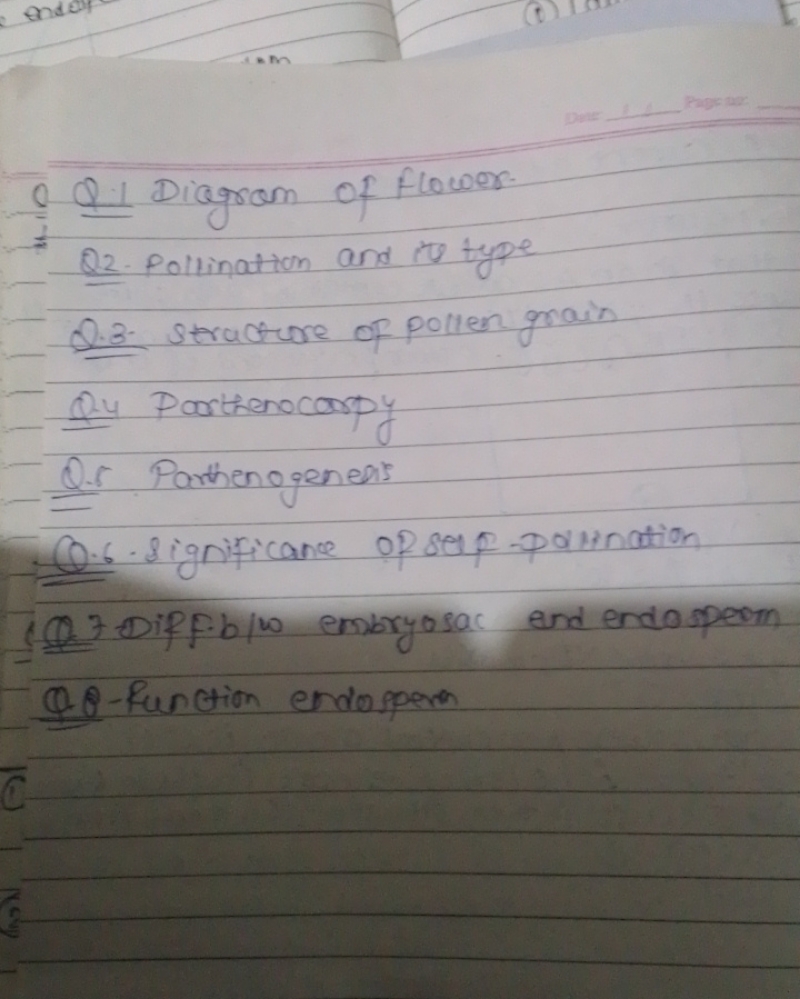 Date / / Page no.
Q.1 Diagram of flower.
Q2. Pollination and its type
Q.3. Structure of pollen grain
Q.4 Parthenocarpy
Q.5 Parthenogenesis
Q.6. Significance of self-pollination
Q.7 Diff. b/w embryosac and endosperm
Q.8 - function endosperm